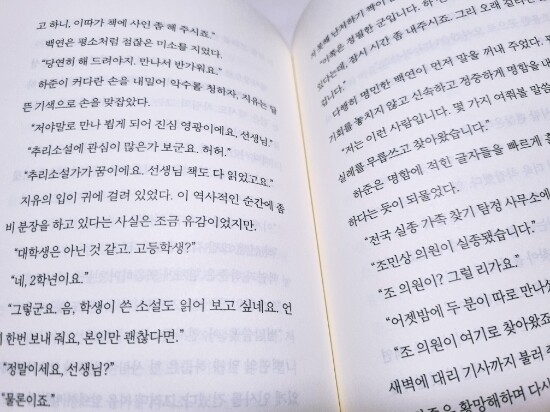 고 하니, 이따가 책에 사인 좀 해 주시죠.”
백연은 평소처럼 점잖은 미소를 지었다.
“당연히 해 드려야지. 만나서 반가워요.”
하준이 커다란 손을 내밀어 악수를 청하자, 지유는 들
뜬 기색으로 손을 맞잡았다.
“저야말로 만나 뵙게 되어 진심 영광이에요, 선생님!”
“추리소설에 관심이 많은가 보군요. 허허.”
“추리소설가가 꿈이에요. 선생님 책도 다 읽었고요.”
지유의 입이 귀에 걸려 있었다. 이 역사적인 순간에 좀
비 분장을 하고 있다는 사실은 조금 유감이었지만.
“대학생은 아닌 것 같고. 고등학생?”
“네, 2학년이요.”
“그렇군요. 음, 학생이 쓴 소설도 읽어 보고 싶네요. 언
한번 보내 줘요, 본인만 괜찮다면.”
“정말이세요, 선생님?”
“물론이죠.”
“이쪽은 정필한 군입니다. 하
있다는데, 잠시 시간 좀 내주시죠. 그리 오래
입니다.”
다행히 명민한 백연이 먼저 말을 꺼내 주었다.
기회를 놓치지 않고 신속하고 정중하게 명함을 내
“저는 이런 사람입니다. 몇 가지 여쭤볼 말씀
실례를 무릅쓰고 찾아왔습니다.”
하준은 명함에 적힌 글자들을 빠르게 훑
하다는 듯이 되물었다.
“전국 실종 가족 찾기 탐정 사무소에
“조민상 의원이 실종됐습니다.”
“조 의원이? 그럴 리가요.”
“어젯밤에 두 분이 따로 만나셨
“조 의원이 여기로 찾아왔죠
새벽에 대리 기사까지 불러 주
황망해하며 다시